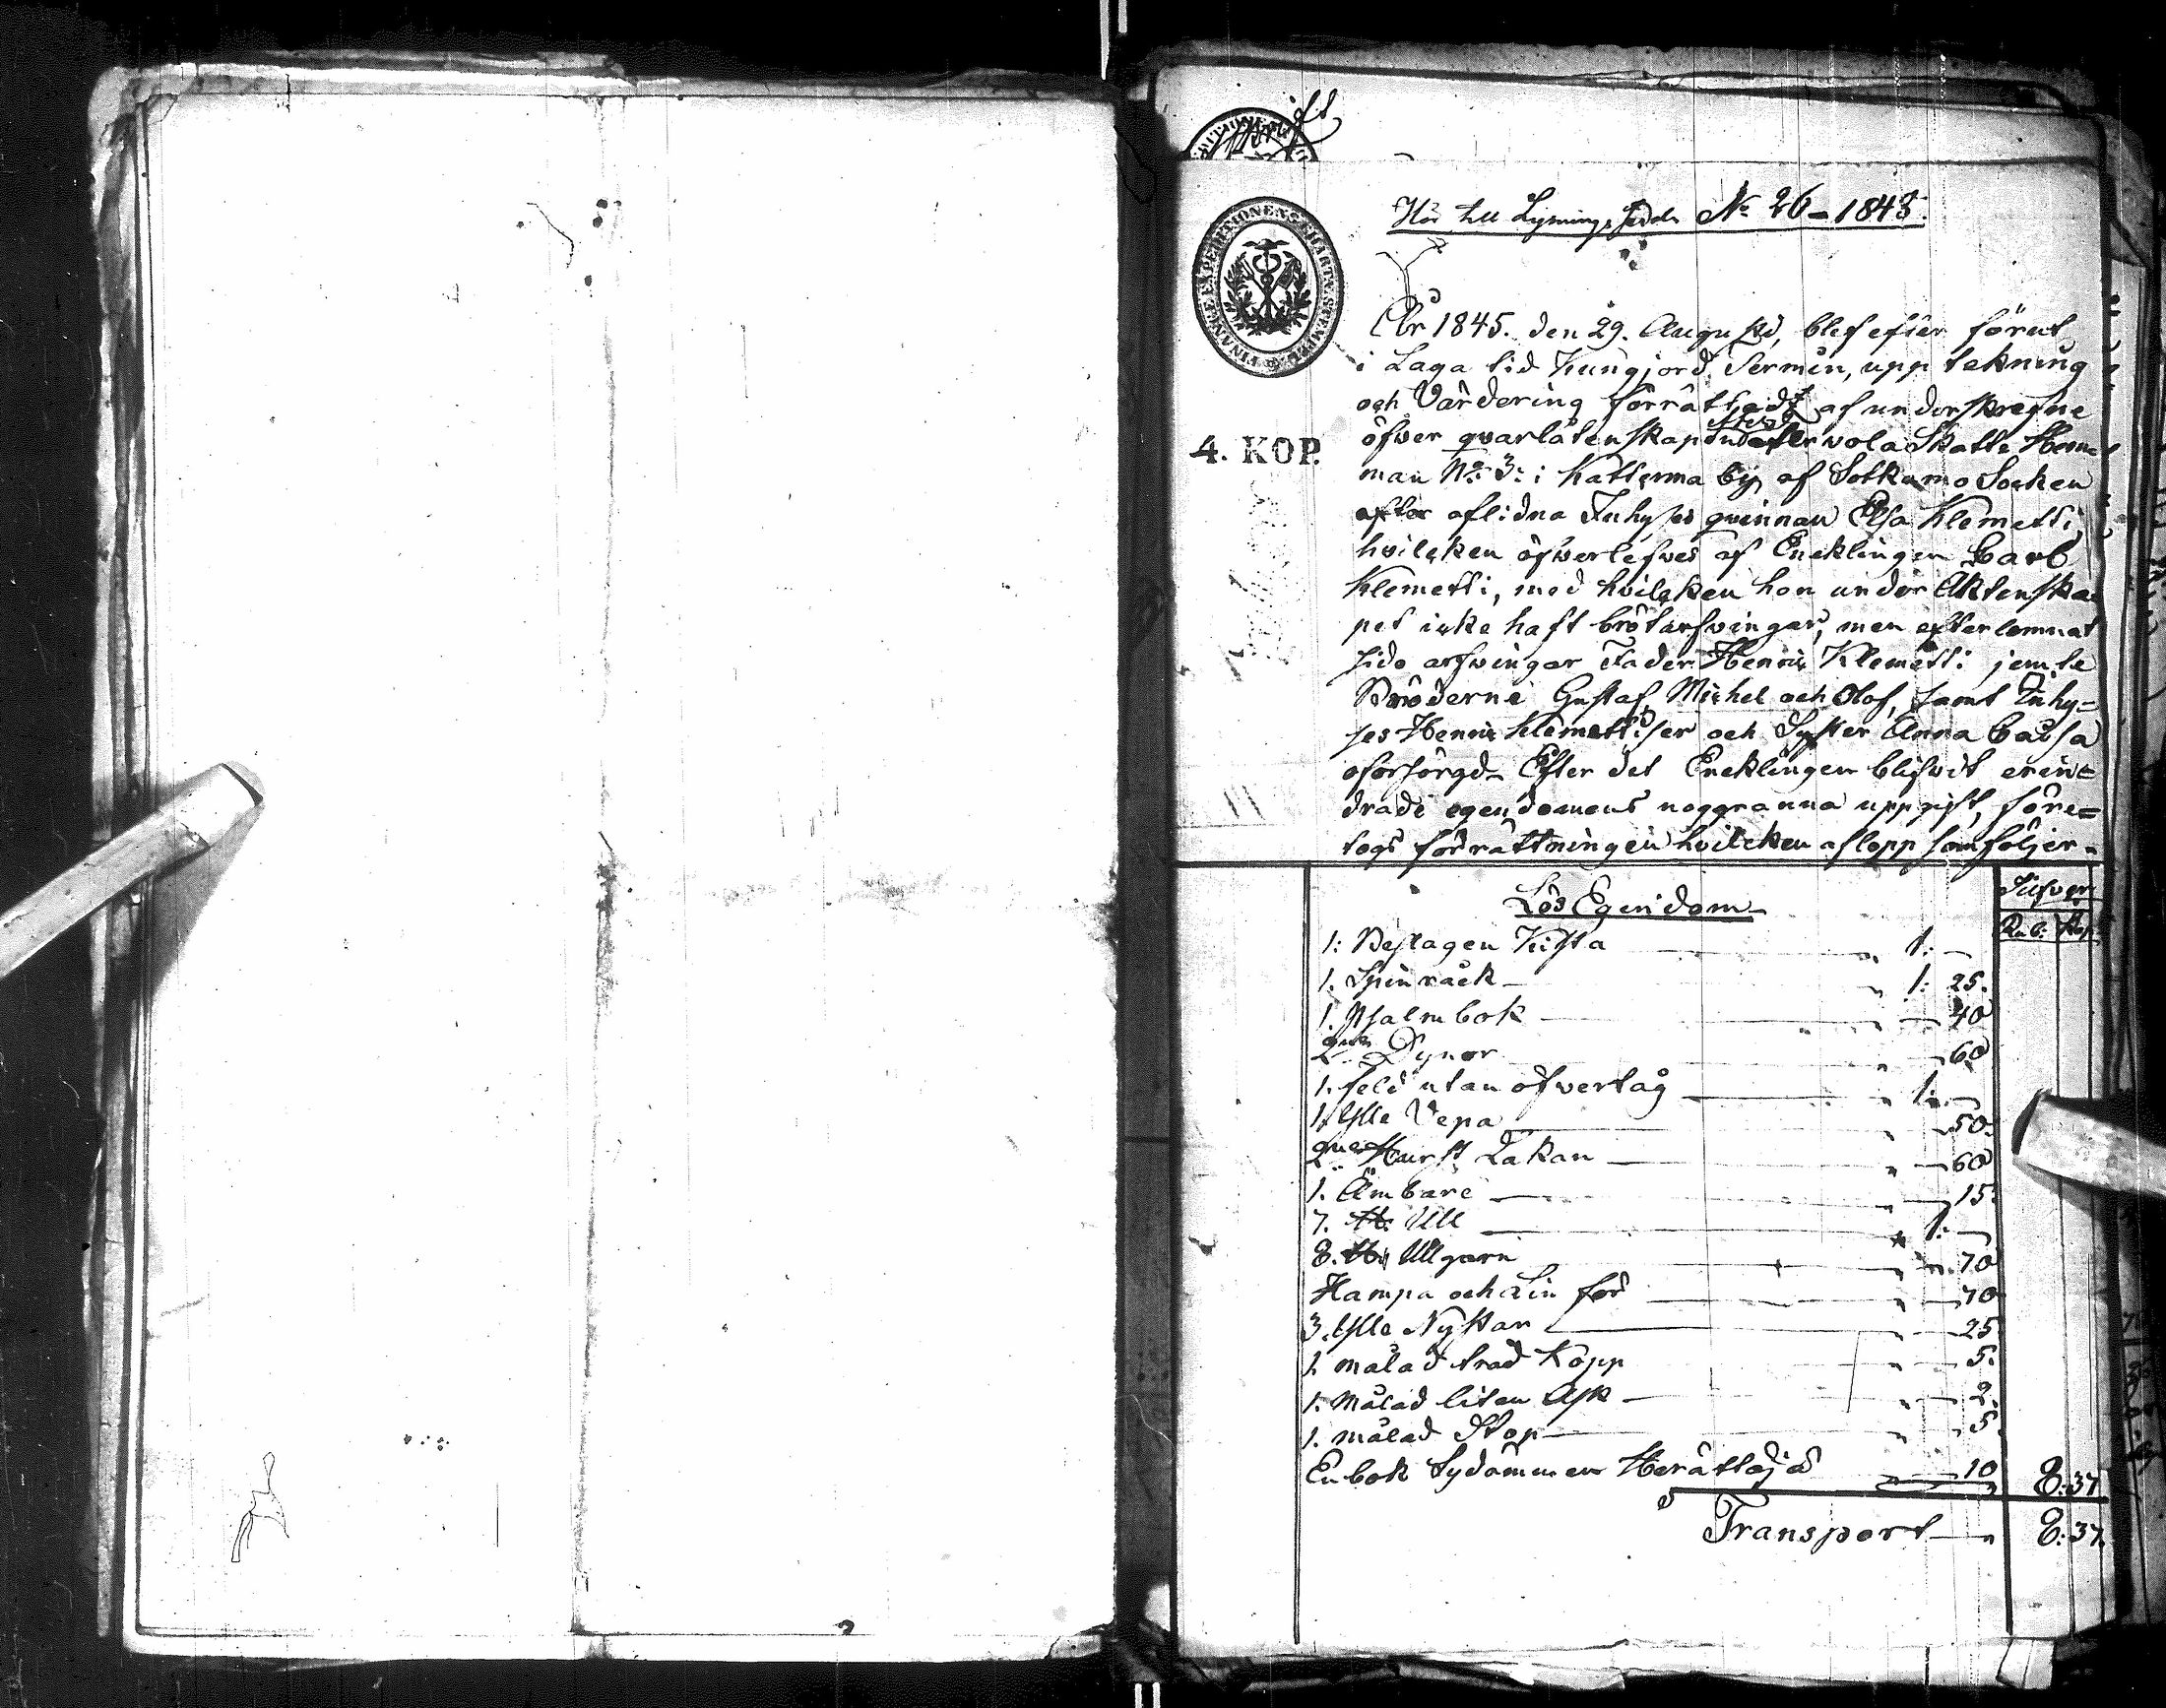 Hör till Lysnings sedel No 26 - 1843.
FINANCE EXPEDITIONENS CHARTÆ STEMPEL
4. KOP.
År 1845. den 29. Augusti, blef efter förut
i Laga tid Kungjord Termin, upptekning
och Värdering förrättadt af underskrefne
öfwer qvarlåtenskapen wola Skatte Hem
man No 3: i Katterma by af Sotkamo Socken
efter aflidna Inhyses qwinnan Elsa Klemetti,
hvilcken öfwerlefves af Encklingen Carl
Klemetti, med hvilcken hon under Äktenska
pet icke haft bröstarfvingar, men efterlemnat
sido arfwingar Fader Henric Klemetti jemte
Bröderne Gustaf, Michel och Olof, samt Inhy=
ses Henric Klemettiser och Syster Anna Caisa
oforsörgd. Efter det Encklingen blifvit erin=
drad egendomens noggranna uppgift, före=
togs förrättningen hvilcken aflopp som följer.
Lös Egendom
Silfver
Rub: Kop:
1: Beslagen Kista " 1: —
1. Spinråck " 1: 25.
1. Psalmbok " — 40
2ne Dynor " — 60
1. feld utan öfvertåg " 1: —
1. Ylle Vepa " 50:
2ne Hurst Lakan " — 60
1. Ämbare — 15:
7. ℔ Ull " 1: —
8. ℔ Ullgarn " 70
Hampa och Lin för " — 70
3. Ylle Nystan " — 25
1. målad träd Kopp " — 5:
1. målad liten Ask " — 2.
1. målad Stop " " 5.
En bok Sydämmen — 10 8:37
Transport " 8:37.